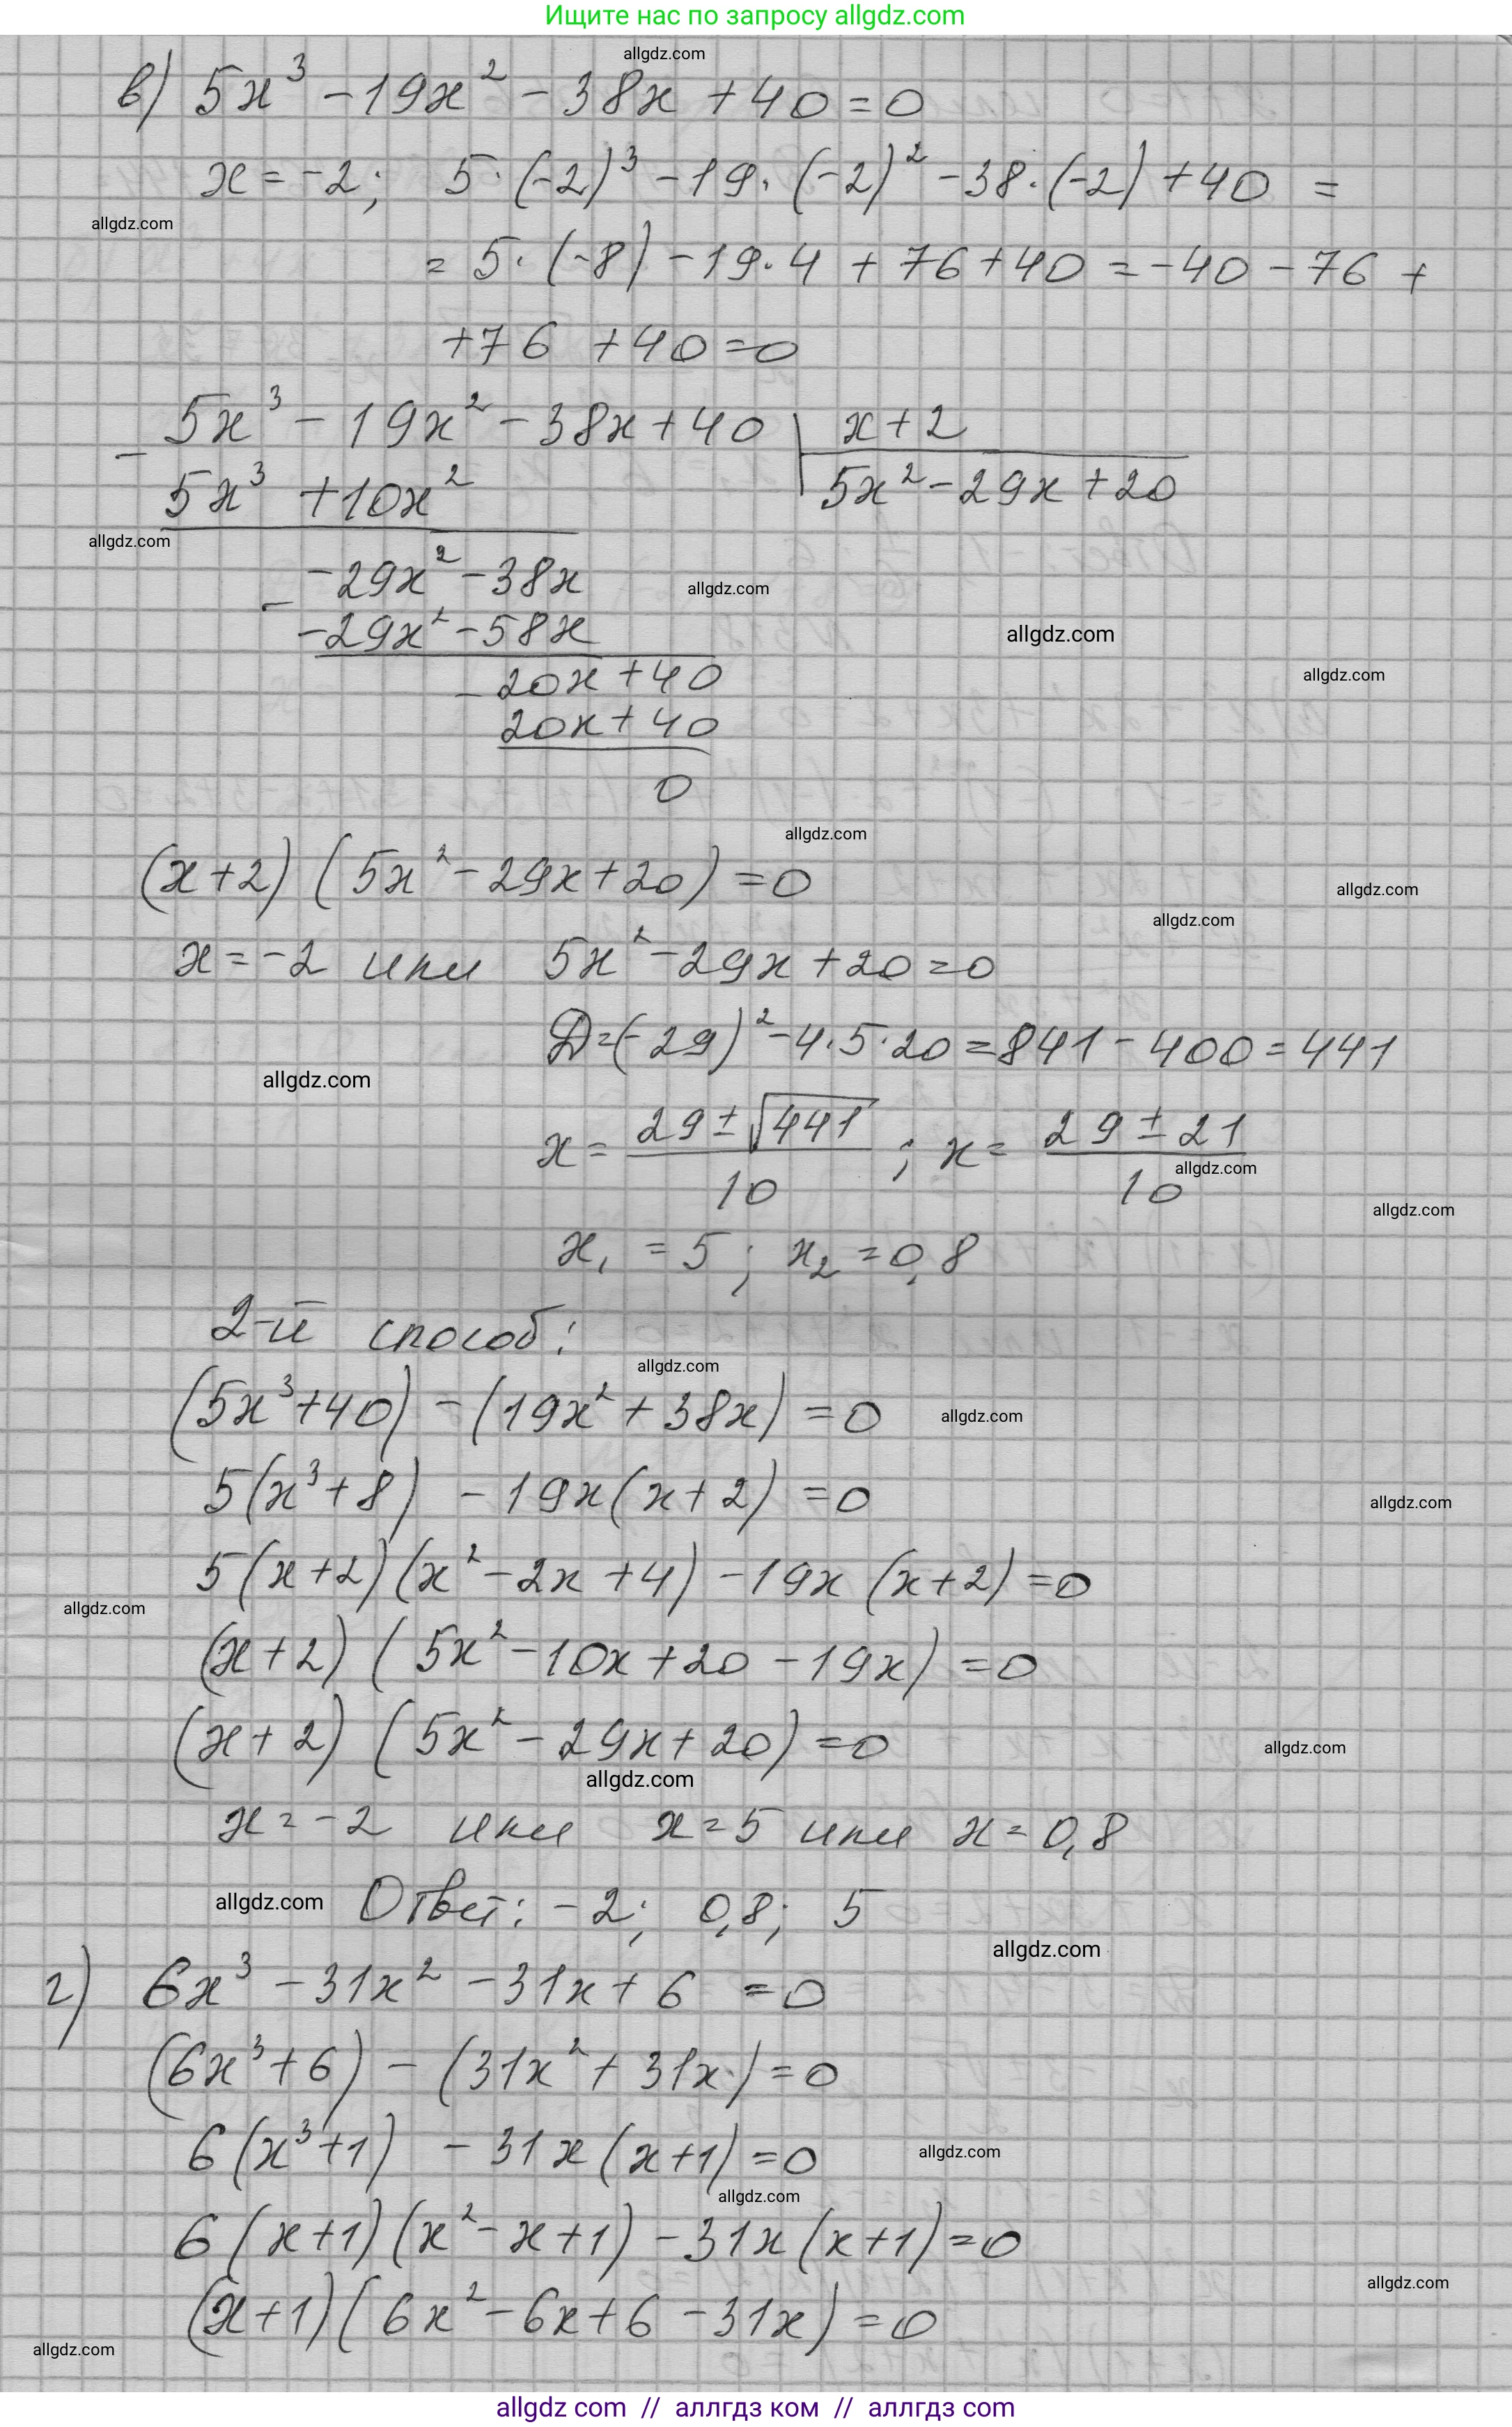 Ищите нас по запросу allgdz.com
allgdz.com
в) 5x³ - 19x² - 38x + 40 = 0
x = -2; 5·(-2)³ - 19·(-2)² - 38·(-2) + 40 =
allgdz.com
= 5·(-8) - 19·4 + 76 + 40 = -40 - 76 +
+76 +40 = 0
- 5x³ - 19x² - 38x + 40 | x+2
5x³ + 10x² | 5x² - 29x + 20
allgdz.com
- -29x² - 38x
allgdz.com
-29x² - 58x
allgdz.com
- 20x + 40
allgdz.com
20x + 40
0
allgdz.com
(x+2)(5x² - 29x + 20) = 0
allgdz.com
allgdz.com
x = -2 или 5x² - 29x + 20 = 0
D = (-29)² - 4·5·20 = 841 - 400 = 441
allgdz.com
x = (29 ± √441)/10 ; x = (29 ± 21)/10
allgdz.com
allgdz.com
x₁ = 5; x₂ = 0,8
2-й способ:
allgdz.com
(5x³ + 40) - (19x² + 38x) = 0
allgdz.com
5(x³ + 8) - 19x(x + 2) = 0
allgdz.com
5(x+2)(x² - 2x + 4) - 19x(x+2) = 0
allgdz.com
(x+2)(5x² - 10x + 20 - 19x) = 0
(x+2)(5x² - 29x + 20) = 0
allgdz.com
allgdz.com
x = -2 или x = 5 или x = 0,8
allgdz.com
Ответ: -2; 0,8; 5
allgdz.com
г) 6x³ - 31x² - 31x + 6 = 0
(6x³ + 6) - (31x² + 31x) = 0
6(x³ + 1) - 31x(x+1) = 0
allgdz.com
allgdz.com
6(x+1)(x² - x + 1) - 31x(x+1) = 0
allgdz.com
(x+1)(6x² - 6x + 6 - 31x) = 0
allgdz.com
allgdz com // аллгдз ком // аллгдз com